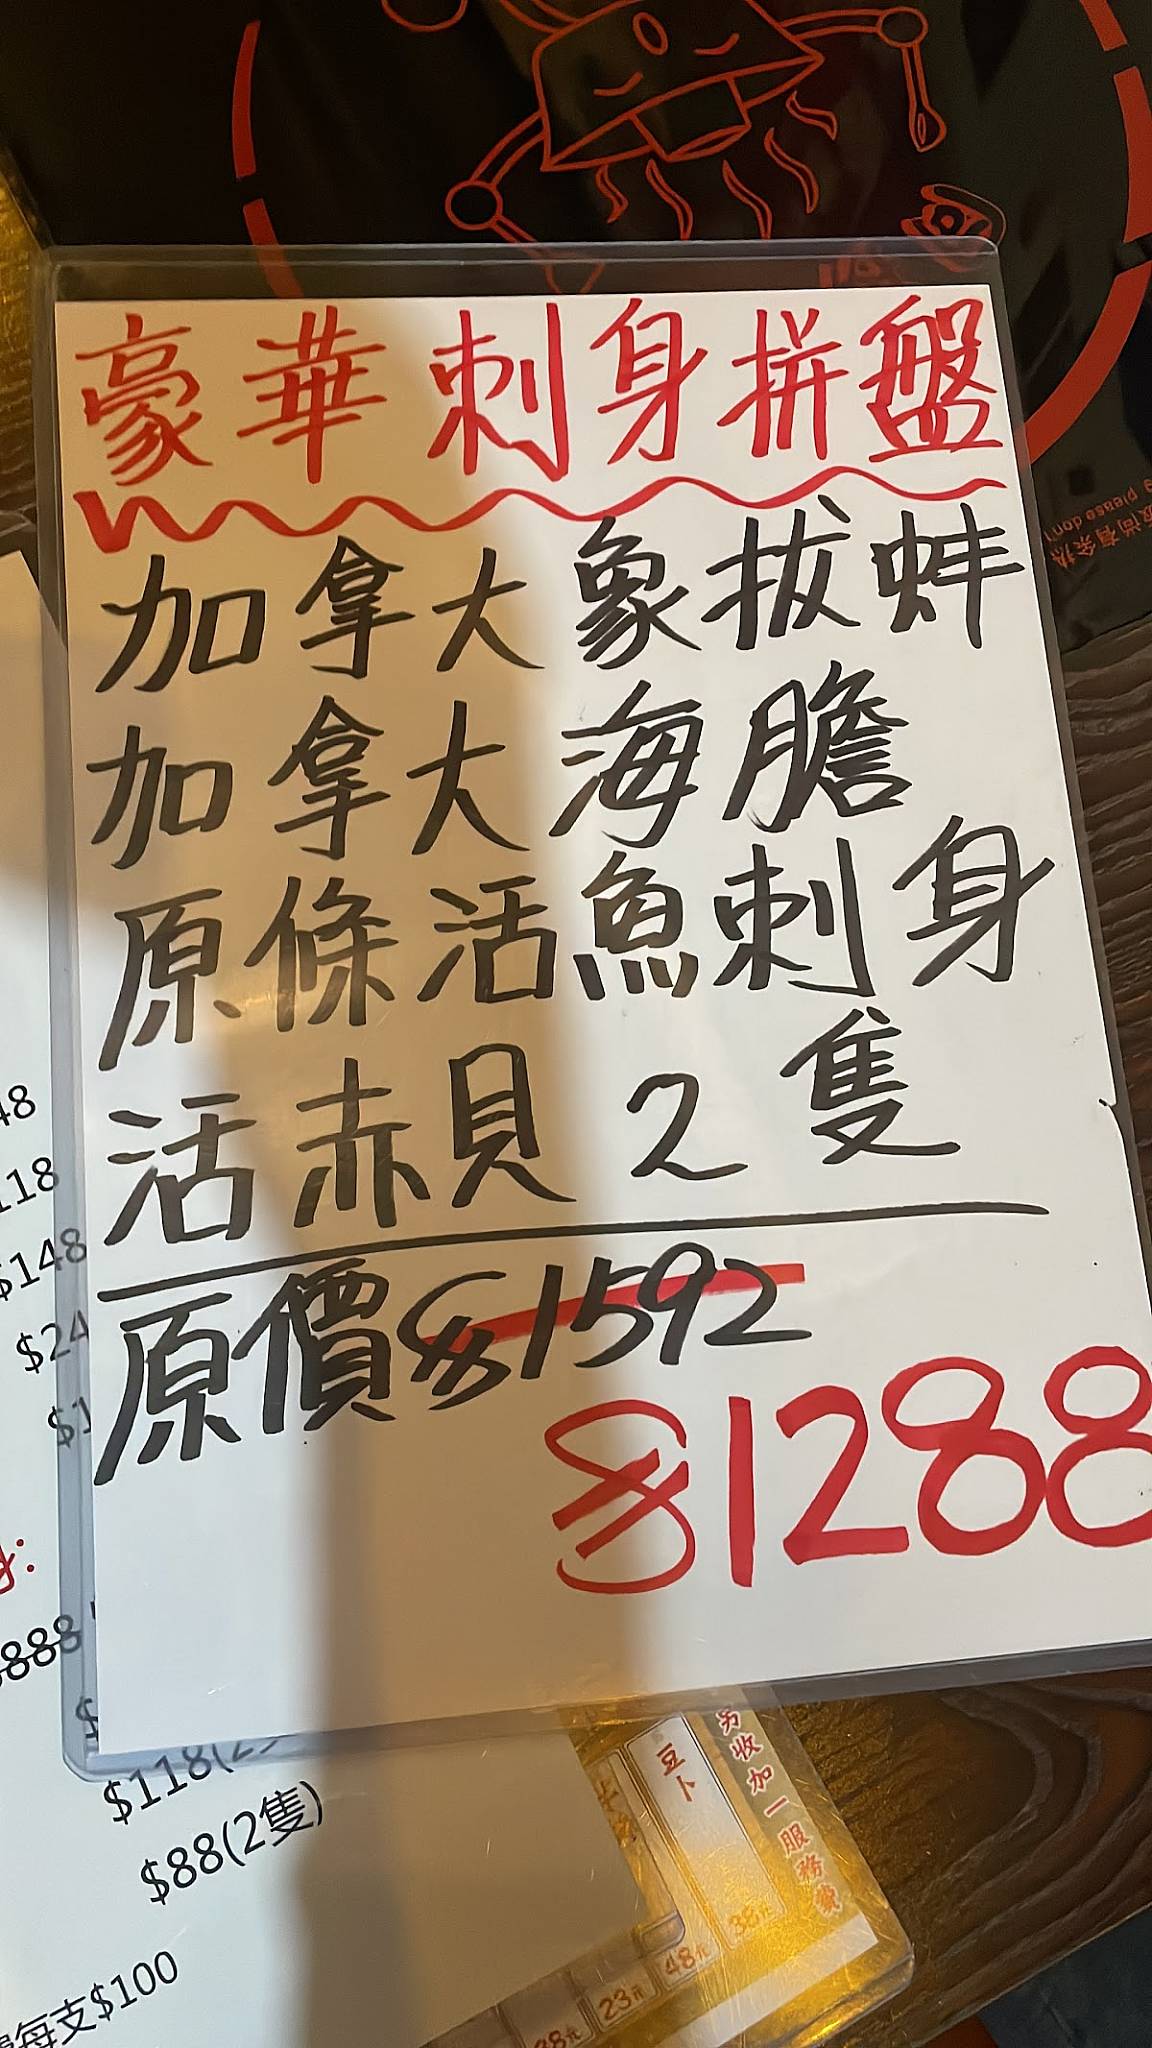 豪華刺身拼盤
加拿大象拔蚌
加拿大海膽
原條活魚刺身
活赤貝2隻
原價$1592
$1288
118
$148
$24
$118(2
$88(2隻)
每支$100
豆卜
另收加一服務費
38元
48元
23元
38元
please don't